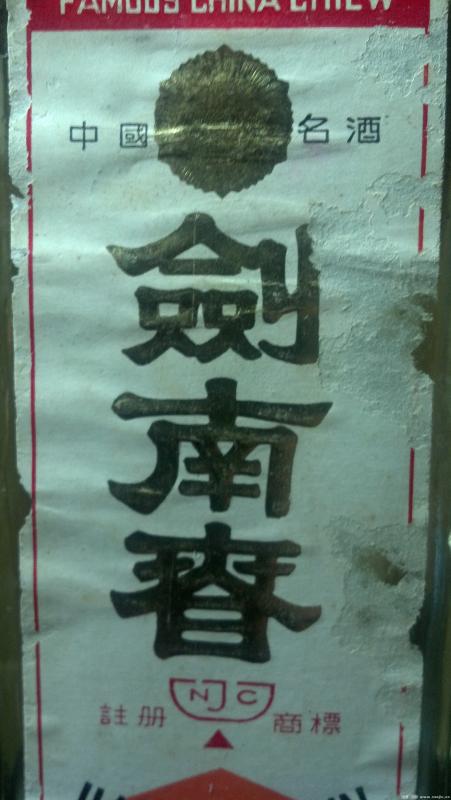 FAMOUS CHINA CHIEW
中國 名酒
劍南春
NJC
註册 商標